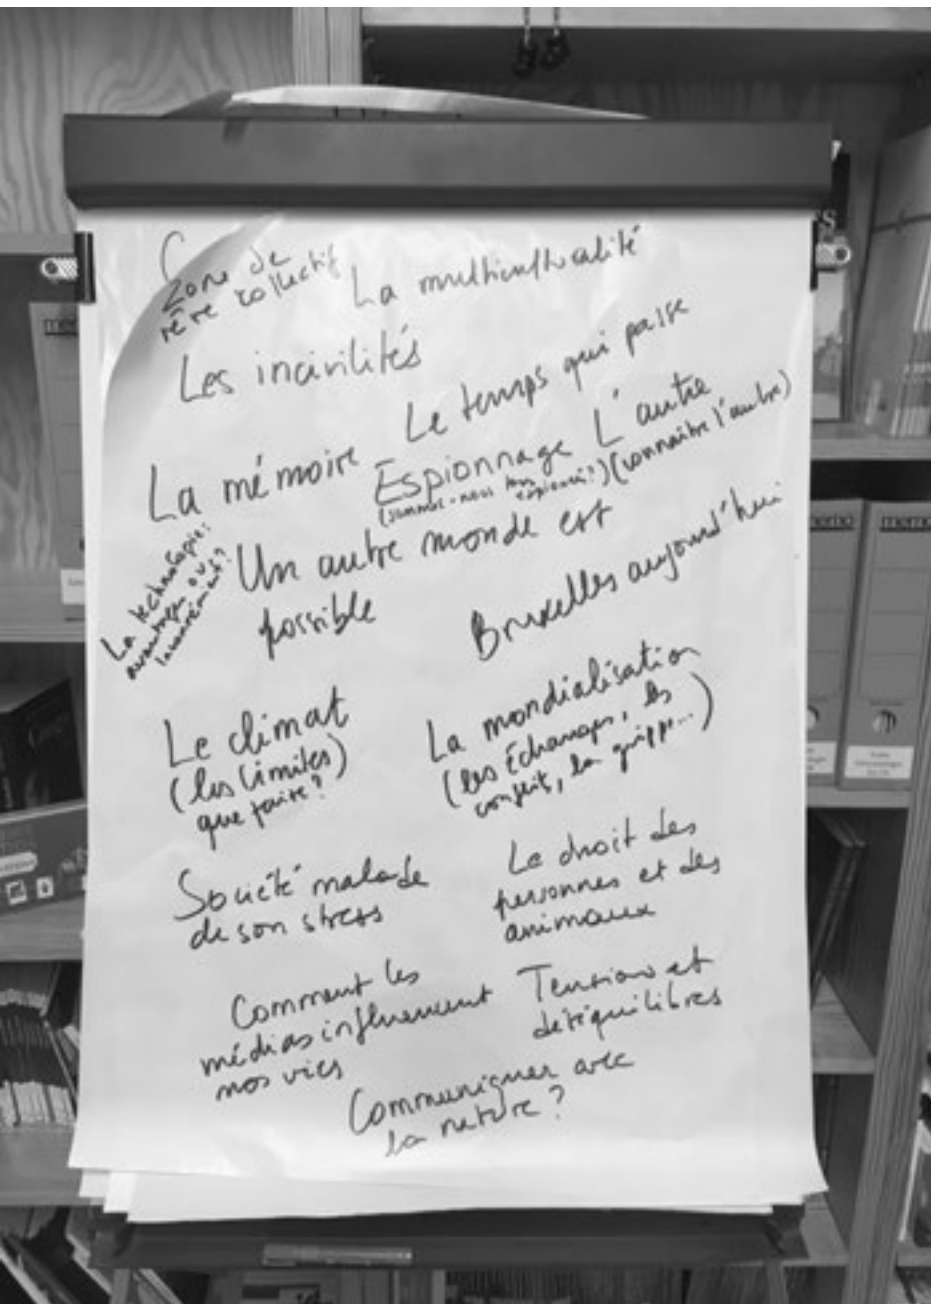 Zone de
rêve collectif
La multiculturalité
Les incivilités
Le temps qui passe
La mémoire
Espionnage
(sommes-nous tous
espionnés?)
L'autre
(connaître l'autre)
La technologie:
avantages ou
inconvénient?
Un autre monde est
possible
Bruxelles aujourd'hui
Le climat
(les limites)
que faire?
La mondialisation
(les échanges, les
conflits, la grippe...)
Société malade
de son stress
Le droit des
personnes et des
animaux
Comment les
médias influencent
nos vies
Tensions et
déséquilibres
Communiquer avec
la nature?